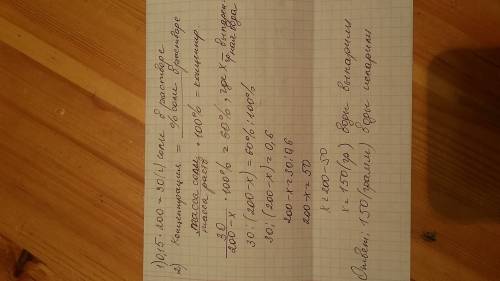 1) 0,15 · 200 = 30(г) соли в растворе
2) Концентрация = % соли в растворе
масса соли / масса раств · 100% = концентр.
30 / 200-x · 100% = 60%, где x - выпаренная вода
30 : (200-x) = 60% : 100%
30 : (200-x) = 0,6
200-x = 30 : 0,6
200-x = 50
x = 200-50
x = 150 (гр) воды выпарили
Ответ: 150 (грамм) воды испарили